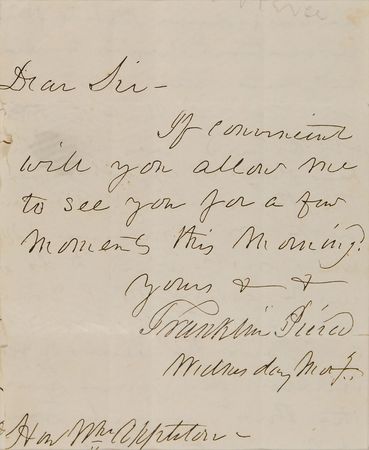 Dear Sir -
If convenient
will you allow me
to see you for a few
moments this morning?
Yours & &
Franklin Pierce
Wednesday Mor'g.
Hon Wm Appleton -